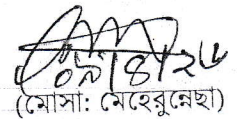 ০৯/৪/২৬
(মোসা: মেহেরুন্নেছা)